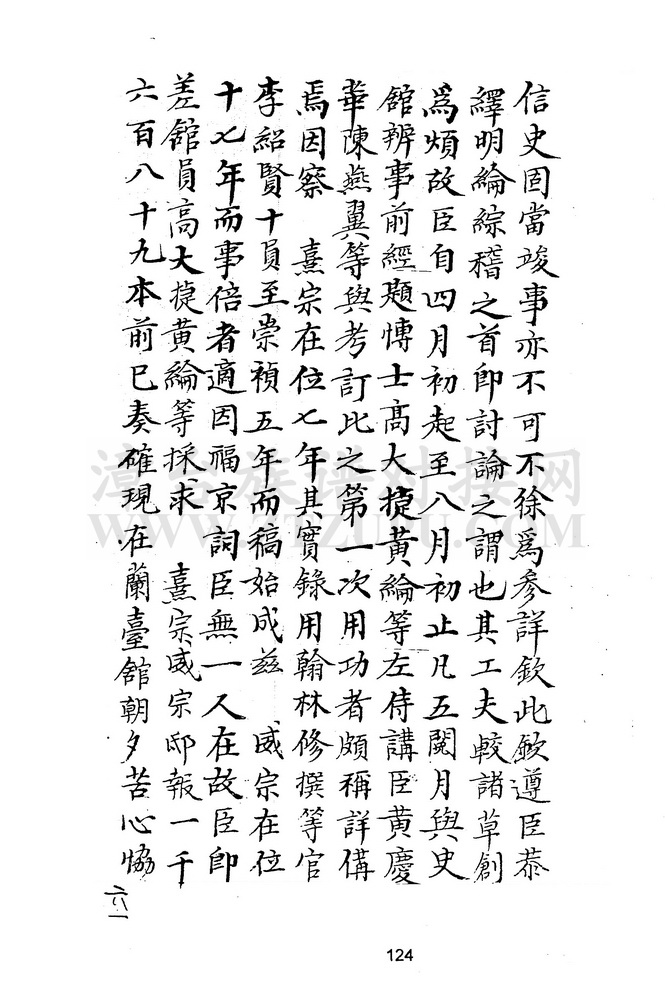 信史固當竣事亦不可不徐爲參詳欽此欽遵臣恭
繹明綸綜稽之首卽討論之謂也其工夫較諸草創
爲煩故臣自四月初起至八月初止凡五閱月與史
舘辨事前經題博士高大捷黃綸等左侍講臣黃慶
華陳燕翼等與考訂此之第一次用功者頗稱詳備
焉因察 熹宗在位七年其實錄用翰林修撰等官
李紹賢十員至崇禎五年而稿始成茲 威宗在位
十七年而事倍者適因福京詞臣無一人在故臣卽
差舘員高大捷黃綸等採求 熹宗威宗邸報一千
六百八十九本前已奏確現在蘭臺舘朝夕苦心恊
六八一
124
漳台族譜对接网
WWW.ZTZUPU.COM